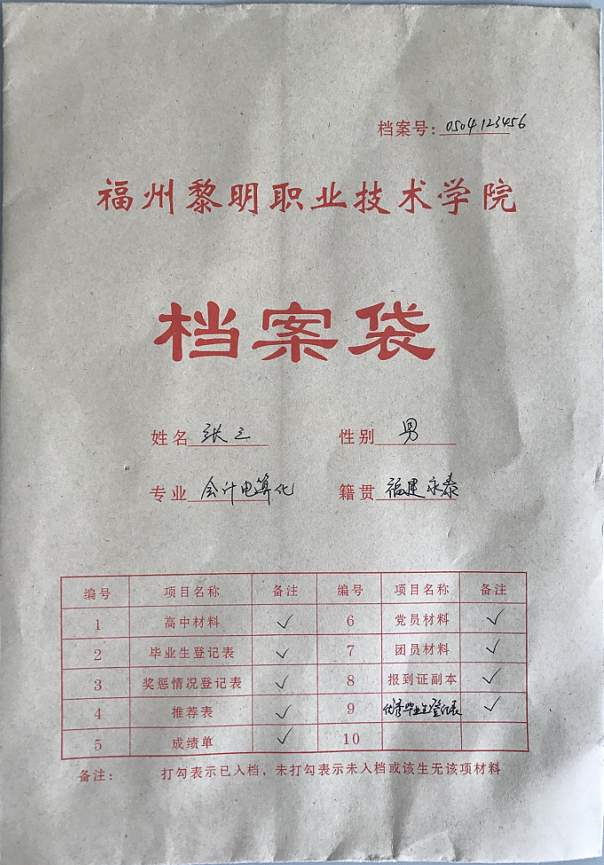 档案号：0504123456
福州黎明职业技术学院
档案袋
姓名 张三 性别 男
专业 会计电算化 籍贯 福建永泰
编号 项目名称 备注 编号 项目名称 备注
1 高中材料 ✓ 6 党员材料 ✓
2 毕业生登记表 ✓ 7 团员材料 ✓
3 奖惩情况登记表 ✓ 8 报到证副本 ✓
4 推荐表 ✓ 9 优秀毕业生登记表 ✓
5 成绩单 ✓ 10
备注： 打勾表示已入档，未打勾表示未入档或该生无该项材料